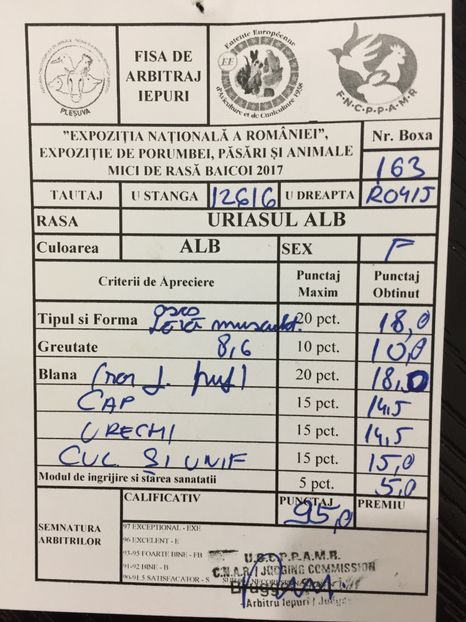 FISA DE
ARBITRAJ
IEPURI
PLESUVA
Entente Européenne
EE
d'Aviculture et de Cuniculture 1938
F-N-C-P-P-A-M-R
"EXPOZIȚIA NAȚIONALĂ A ROMÂNIEI",
EXPOZIȚIE DE PORUMBEI, PĂSĂRI ȘI ANIMALE
MICI DE RASĂ BAICOI 2017
Nr. Boxa
163
TAUTAJ U STANGA 12616 U DREAPTA RO415
RASA URIASUL ALB
Culoarea ALB SEX F
Criterii de Apreciere Punctaj Maxim Punctaj Obtinut
Tipul si Forma 20 pct. 18,0
Greutate 8,6 10 pct. 10,0
Blana 20 pct. 18,0
CAP 15 pct. 14,5
URECHI 15 pct. 14,5
CUL SI UNIF 15 pct. 15,0
Modul de ingrijire si starea sanatatii 5 pct. 5,0
CALIFICATIV PUNCTAJ 95,0 PREMIU
SEMNATURA
ARBITRILOR
97 EXCEPTIONAL - EXE
96 EXCELENT - E
93-95 FOARTE BINE - FB
91-92 BINE - B
90-91.5 SATISFACATOR - S
U.S.C.P.P.A.M.R.
C.N.A.R / JUDGING COMMISSION
Arbitru Iepuri / Judge